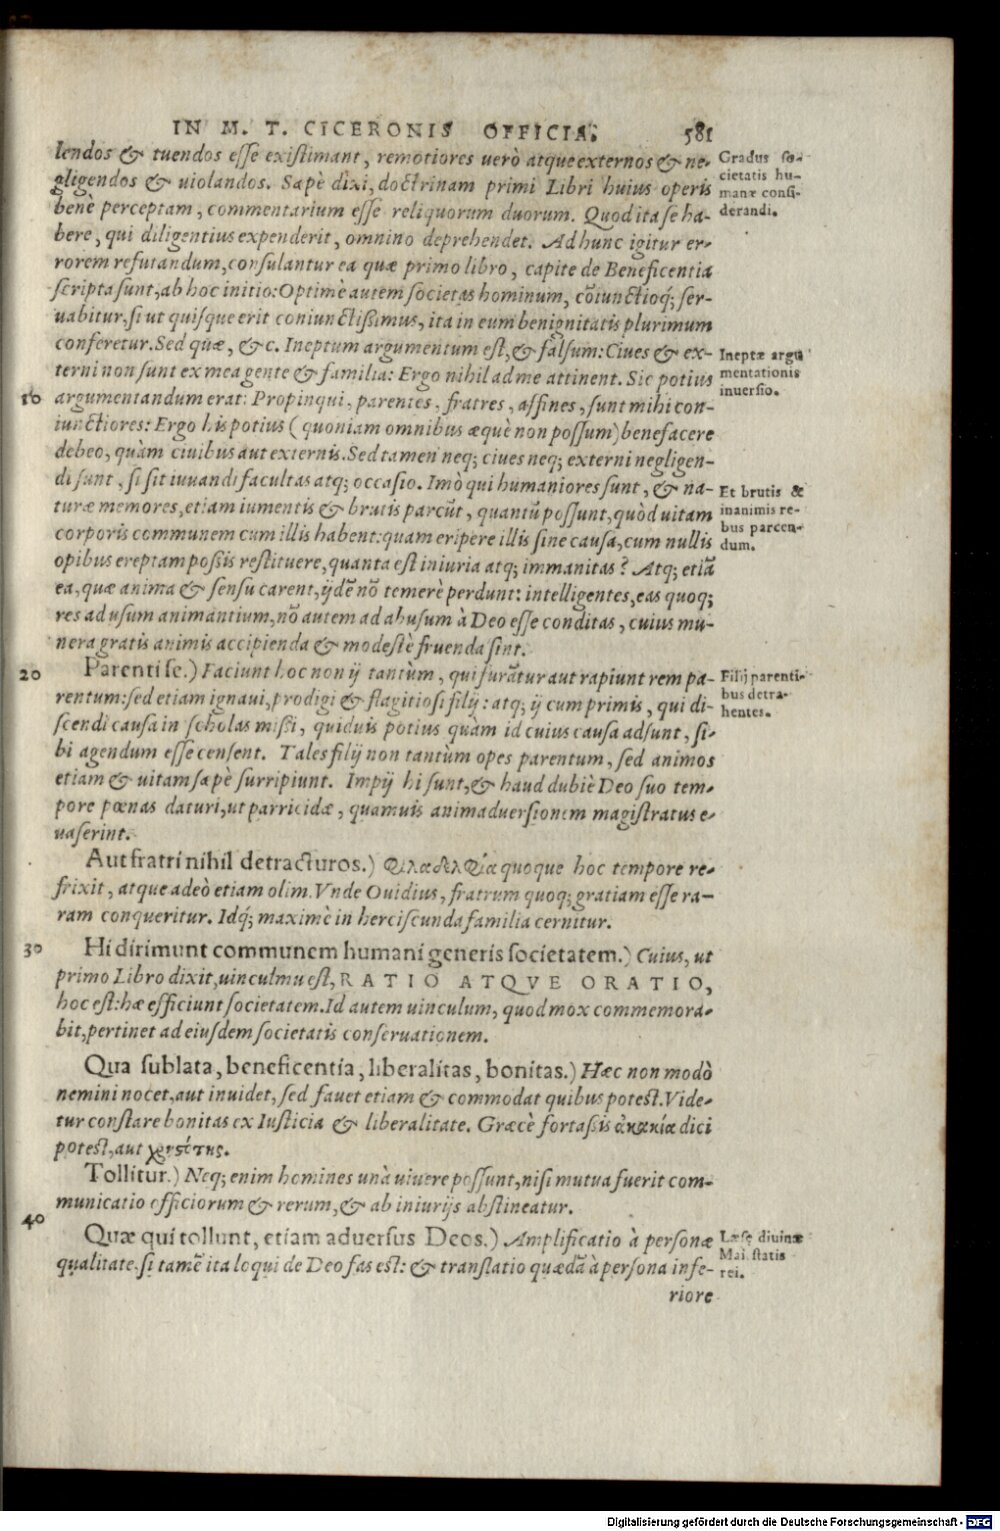 IN M. T. CICERONIS OFFICIA. 581
lendos & tuendos esse existimant, remotiores uerò atque externos & ne-
gligendos & uiolandos. Sæpè dixi, doctrinam primi Libri huius operis
benè perceptam, commentarium esse reliquorum duorum. Quod ita se ha-
bere, qui diligentius expenderit, omnino deprehendet. Ad hunc igitur er-
rorem refutandum, consulantur ea quæ primo libro, capite de Beneficentia
scripta sunt, ab hoc initio: Optimè autem societas hominum, cõiunctioq; ser-
uabitur, si ut quisque erit coniunctißimus, ita in eum benignitatis plurimum
conferetur. Sed quæ, &c. Ineptum argumentum est, & falsum: Ciues & ex-
terni non sunt ex mea gente & familia: Ergo nihil ad me attinent. Sic potius
10 argumentandum erat: Propinqui, parentes, fratres, affines, sunt mihi con-
iunctiores: Ergo his potius (quoniam omnibus æquè non possum) benefacere
debeo, quàm ciuibus aut externis. Sed tamen neq; ciues neq; externi negligen-
di sunt, si sit iuuandi facultas atq; occasio. Imò qui humaniores sunt, & na-
turæ memores, etiam iumentis & brutis parcũt, quantũ possunt, quòd uitam
corporis communem cum illis habent: quam eripere illis sine causa, cum nullis
opibus ereptam poßis restituere, quanta est iniuria atq; immanitas? Atq; etiã
ea, quæ anima & sensu carent, ijdẽ nõ temerè perdunt: intelligentes, eas quoq;
res ad usum animantium, nõ autem ad abusum à Deo esse conditas, cuius mu-
nera gratis animis accipienda & modestè fruenda sint.
20 Parenti se.) Faciunt hoc non ij tantùm, qui furãtur aut rapiunt rem pa-
rentum: sed etiam ignaui, prodigi & flagitiosi filij: atq; ij cum primis, qui di-
scendi causa in scholas mißi, quiduis potius quàm id cuius causa adsunt, si-
bi agendum esse censent. Tales filij non tantùm opes parentum, sed animos
etiam & uitam sæpè surripiunt. Impij hi sunt, & haud dubiè Deo suo tem-
pore pœnas daturi, ut parricidæ, quamuis animaduersionem magistratus e-
uaserint.
Aut fratri nihil detracturos.) Φιλαδελφία quoque hoc tempore re-
frixit, atque adeò etiam olim. Vnde Ouidius, fratrum quoq; gratiam esse ra-
ram conqueritur. Idq; maximè in herciscunda familia cernitur.
30 Hi dirimunt communem humani generis societatem.) Cuius, ut
primo Libro dixit, uinculmu est, RATIO ATQVE ORATIO,
hoc est: hæ efficiunt societatem. Id autem uinculum, quod mox commemora-
bit, pertinet ad eiusdem societatis conseruationem.
Qua sublata, beneficentia, liberalitas, bonitas.) Hæc non modò
nemini nocet, aut inuidet, sed fauet etiam & commodat quibus potest. Vide-
tur constare bonitas ex Iusticia & liberalitate. Græcè fortaßis ἀκακία dici
potest, aut χρηστότης.
Tollitur.) Neq; enim homines unà uiuere possunt, nisi mutua fuerit com-
municatio officiorum & rerum, & ab iniurijs abstineatur.
40 Quæ qui tollunt, etiam aduersus Deos.) Amplificatio à personæ
qualitate, si tamẽ ita loqui de Deo fas est: & translatio quædã à persona infe-
riore
Gradus so-
cietatis hu-
manæ consi-
derandi.
Ineptæ argu
mentationis
inuersio.
Et brutis &
inanimis re-
bus parcen-
dum.
Filij parenti-
bus detra-
hentes.
Læsę diuinæ
Maiestatis
rei.
Digitalisierung gefördert durch die Deutsche Forschungsgemeinschaft - DFG